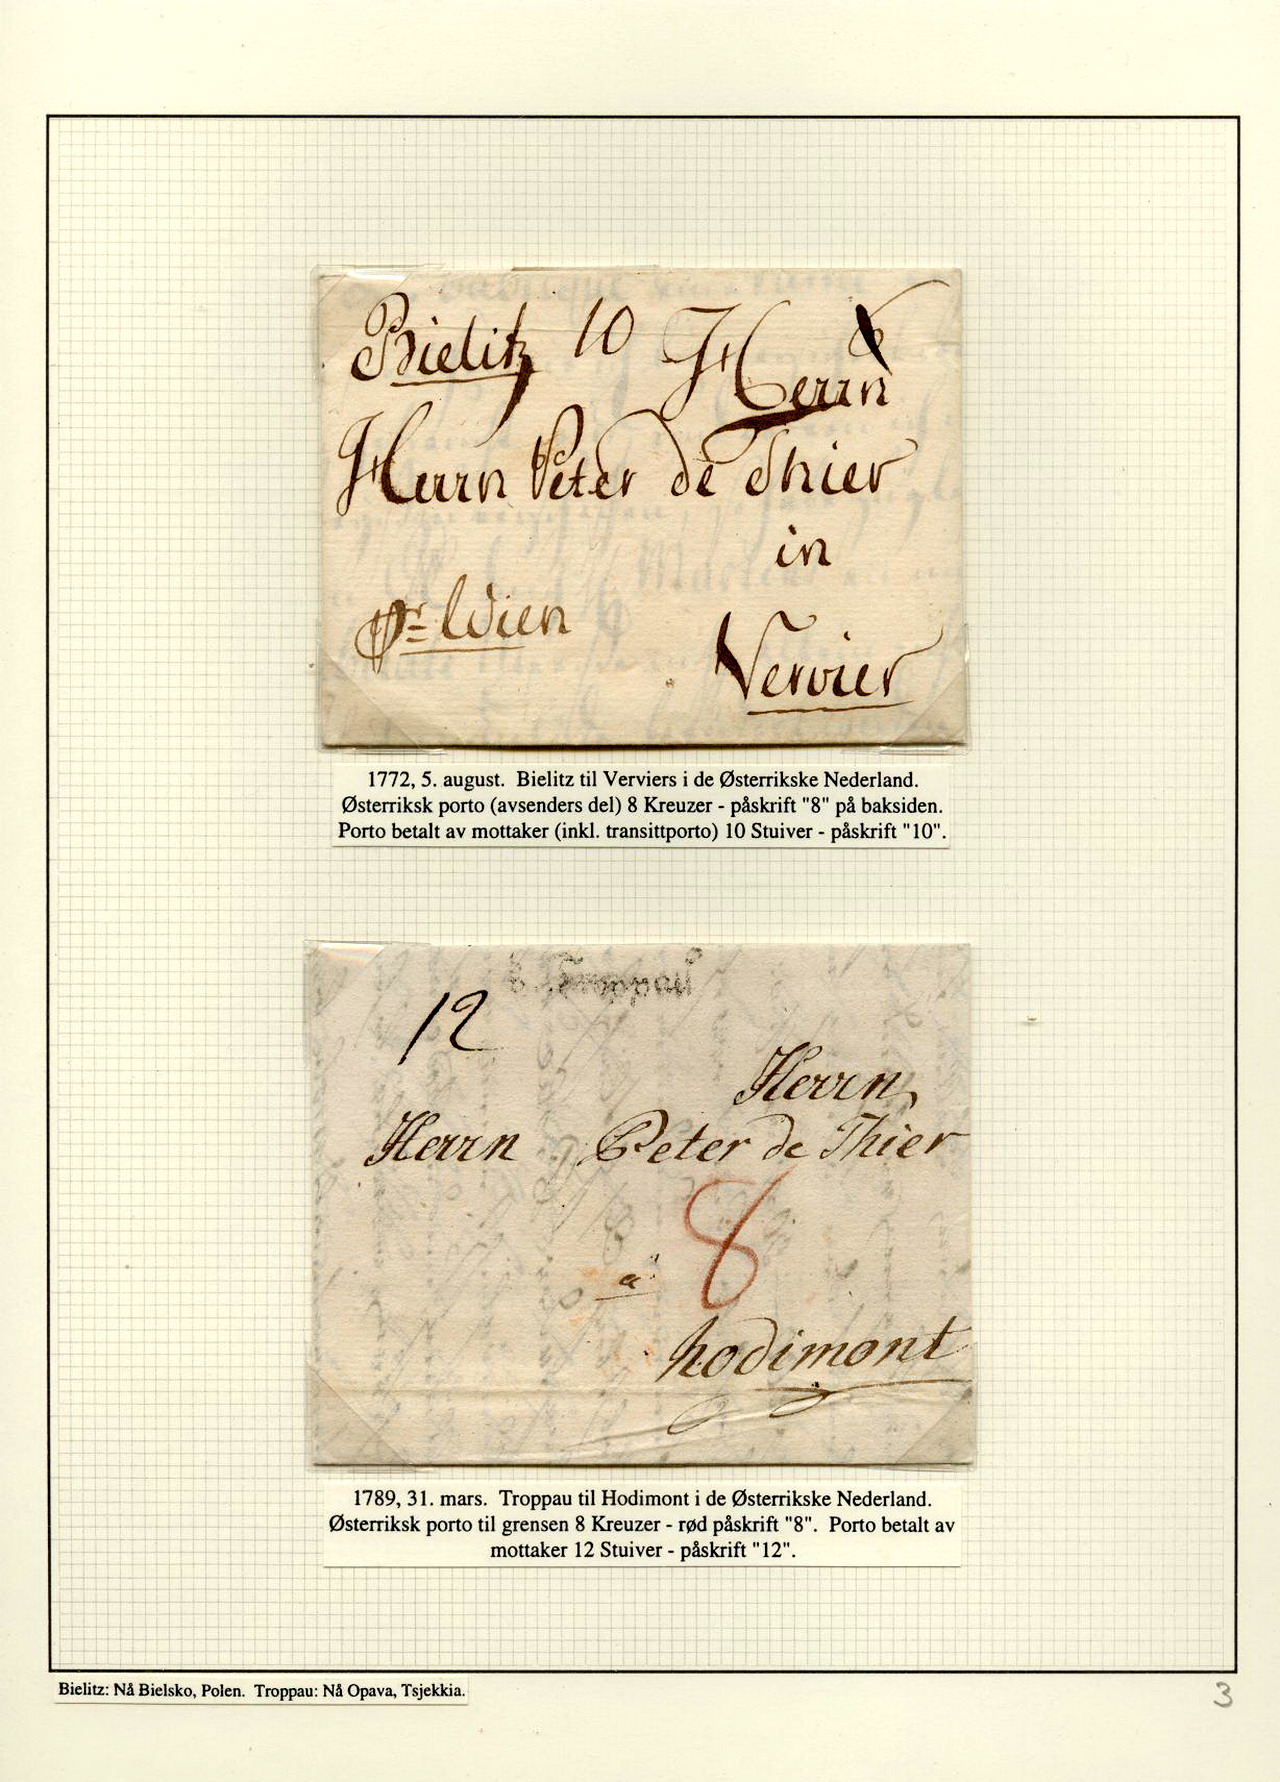 Bielitz 10 Herrn
Herrn Peter de Thier
in
pr Wien
Vervier
1772, 5. august. Bielitz til Verviers i de Østerrikske Nederland.
Østerriksk porto (avsenders del) 8 Kreuzer - påskrift "8" på baksiden.
Porto betalt av mottaker (inkl. transittporto) 10 Stuiver - påskrift "10".
Troppau
12
Herrn
Herrn Peter de Thier
8
a
hodimont
1789, 31. mars. Troppau til Hodimont i de Østerrikske Nederland.
Østerriksk porto til grensen 8 Kreuzer - rød påskrift "8". Porto betalt av
mottaker 12 Stuiver - påskrift "12".
Bielitz: Nå Bielsko, Polen. Troppau: Nå Opava, Tsjekkia.
3